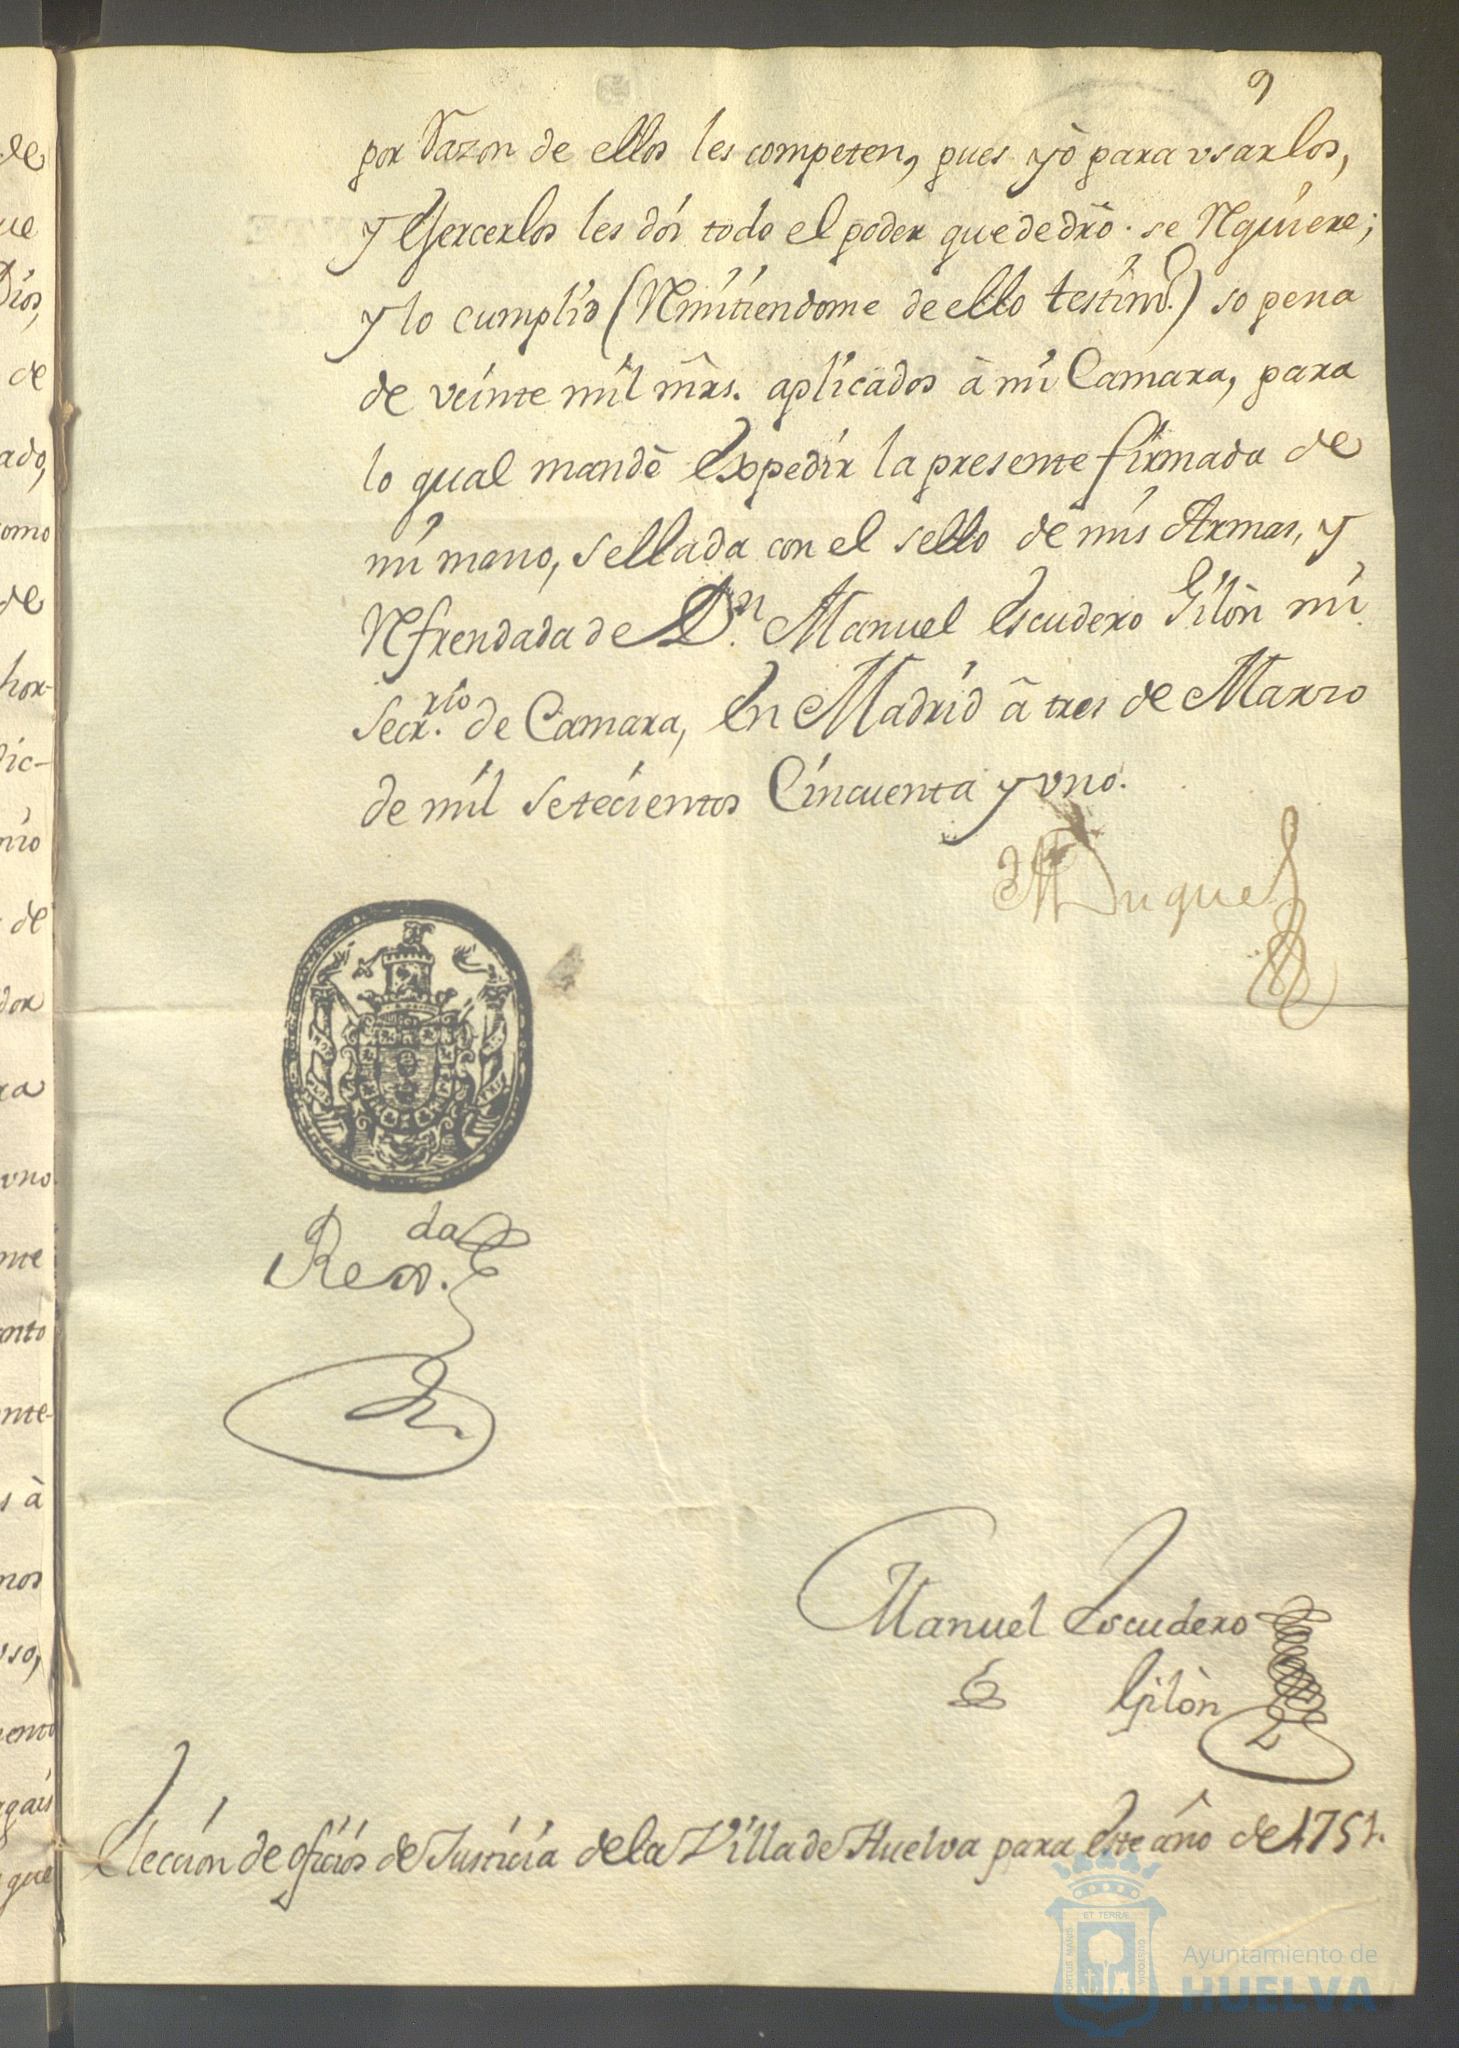 9
por Razon de ellos les competen, pues yò para vsarlos,
y Exercerlos les dói todo el poder que de drõ. se Requiere;
y lo cumplid (Remitiendome de ello testimº.) so pena
de veinte mil mrs. aplicados à mi Camara, para
lo qual mandè Expedir la presente firmada de
mi mano, sellada con el sello de mis Armas, y
Refrendada de Dn. Manuel Escudero Gilòn mi
Secrrio. de Camara, En Madrid à tres de Marzo
de mil Setecientos Cincuenta y vno.
Duque
Manuel Escudero
Gilòn
Elección de oficios de Justicia de la Villa de Huelva para Este año de 1751.
de
ue
Dios,
de
ado,
omo
de
hor-
dic-
nio
de
dor
ra
vno
nte
anto
nte-
s à
nos
vso,
mento
agais
que
PORTUS MARIS
ET TERRÆ
CUSTODIA
Ayuntamiento de
HUELVA